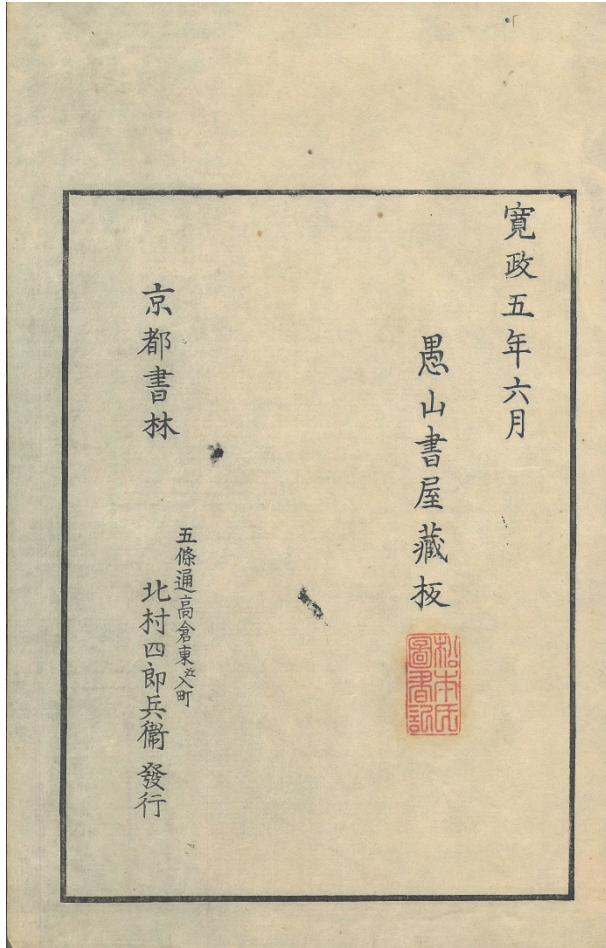 寛政五年六月
愚山書屋藏板
松本氏
圖書記
京都書林
五條通高倉東ヘ入町
北村四郎兵衞發行